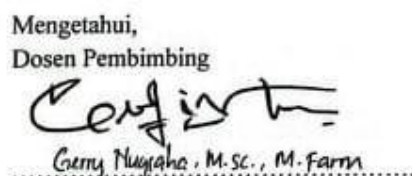 Mengetahui,
Dosen Pembimbing
Gerry Nugraha, M.Sc., M.Farm